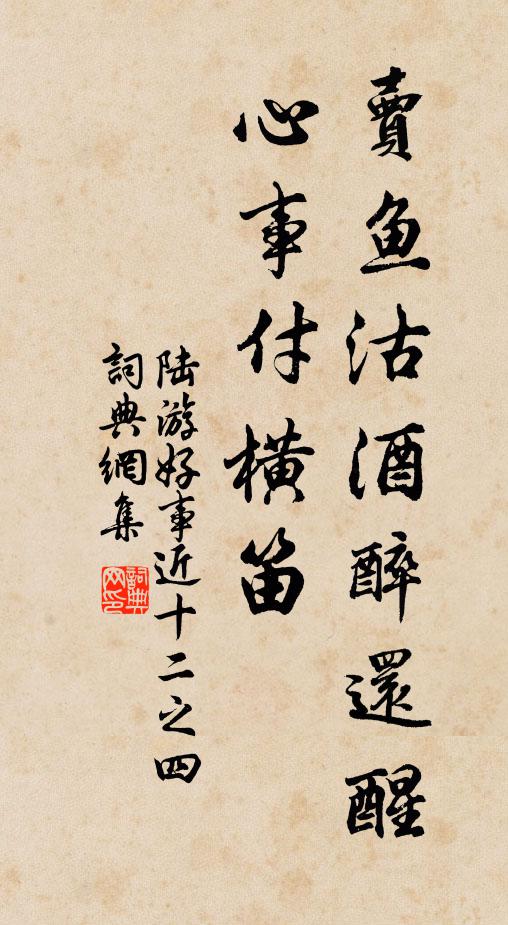 賣魚沽酒醉還醒
心事付橫笛
陸游好事近十二之四
詞典網集
詞典
网印